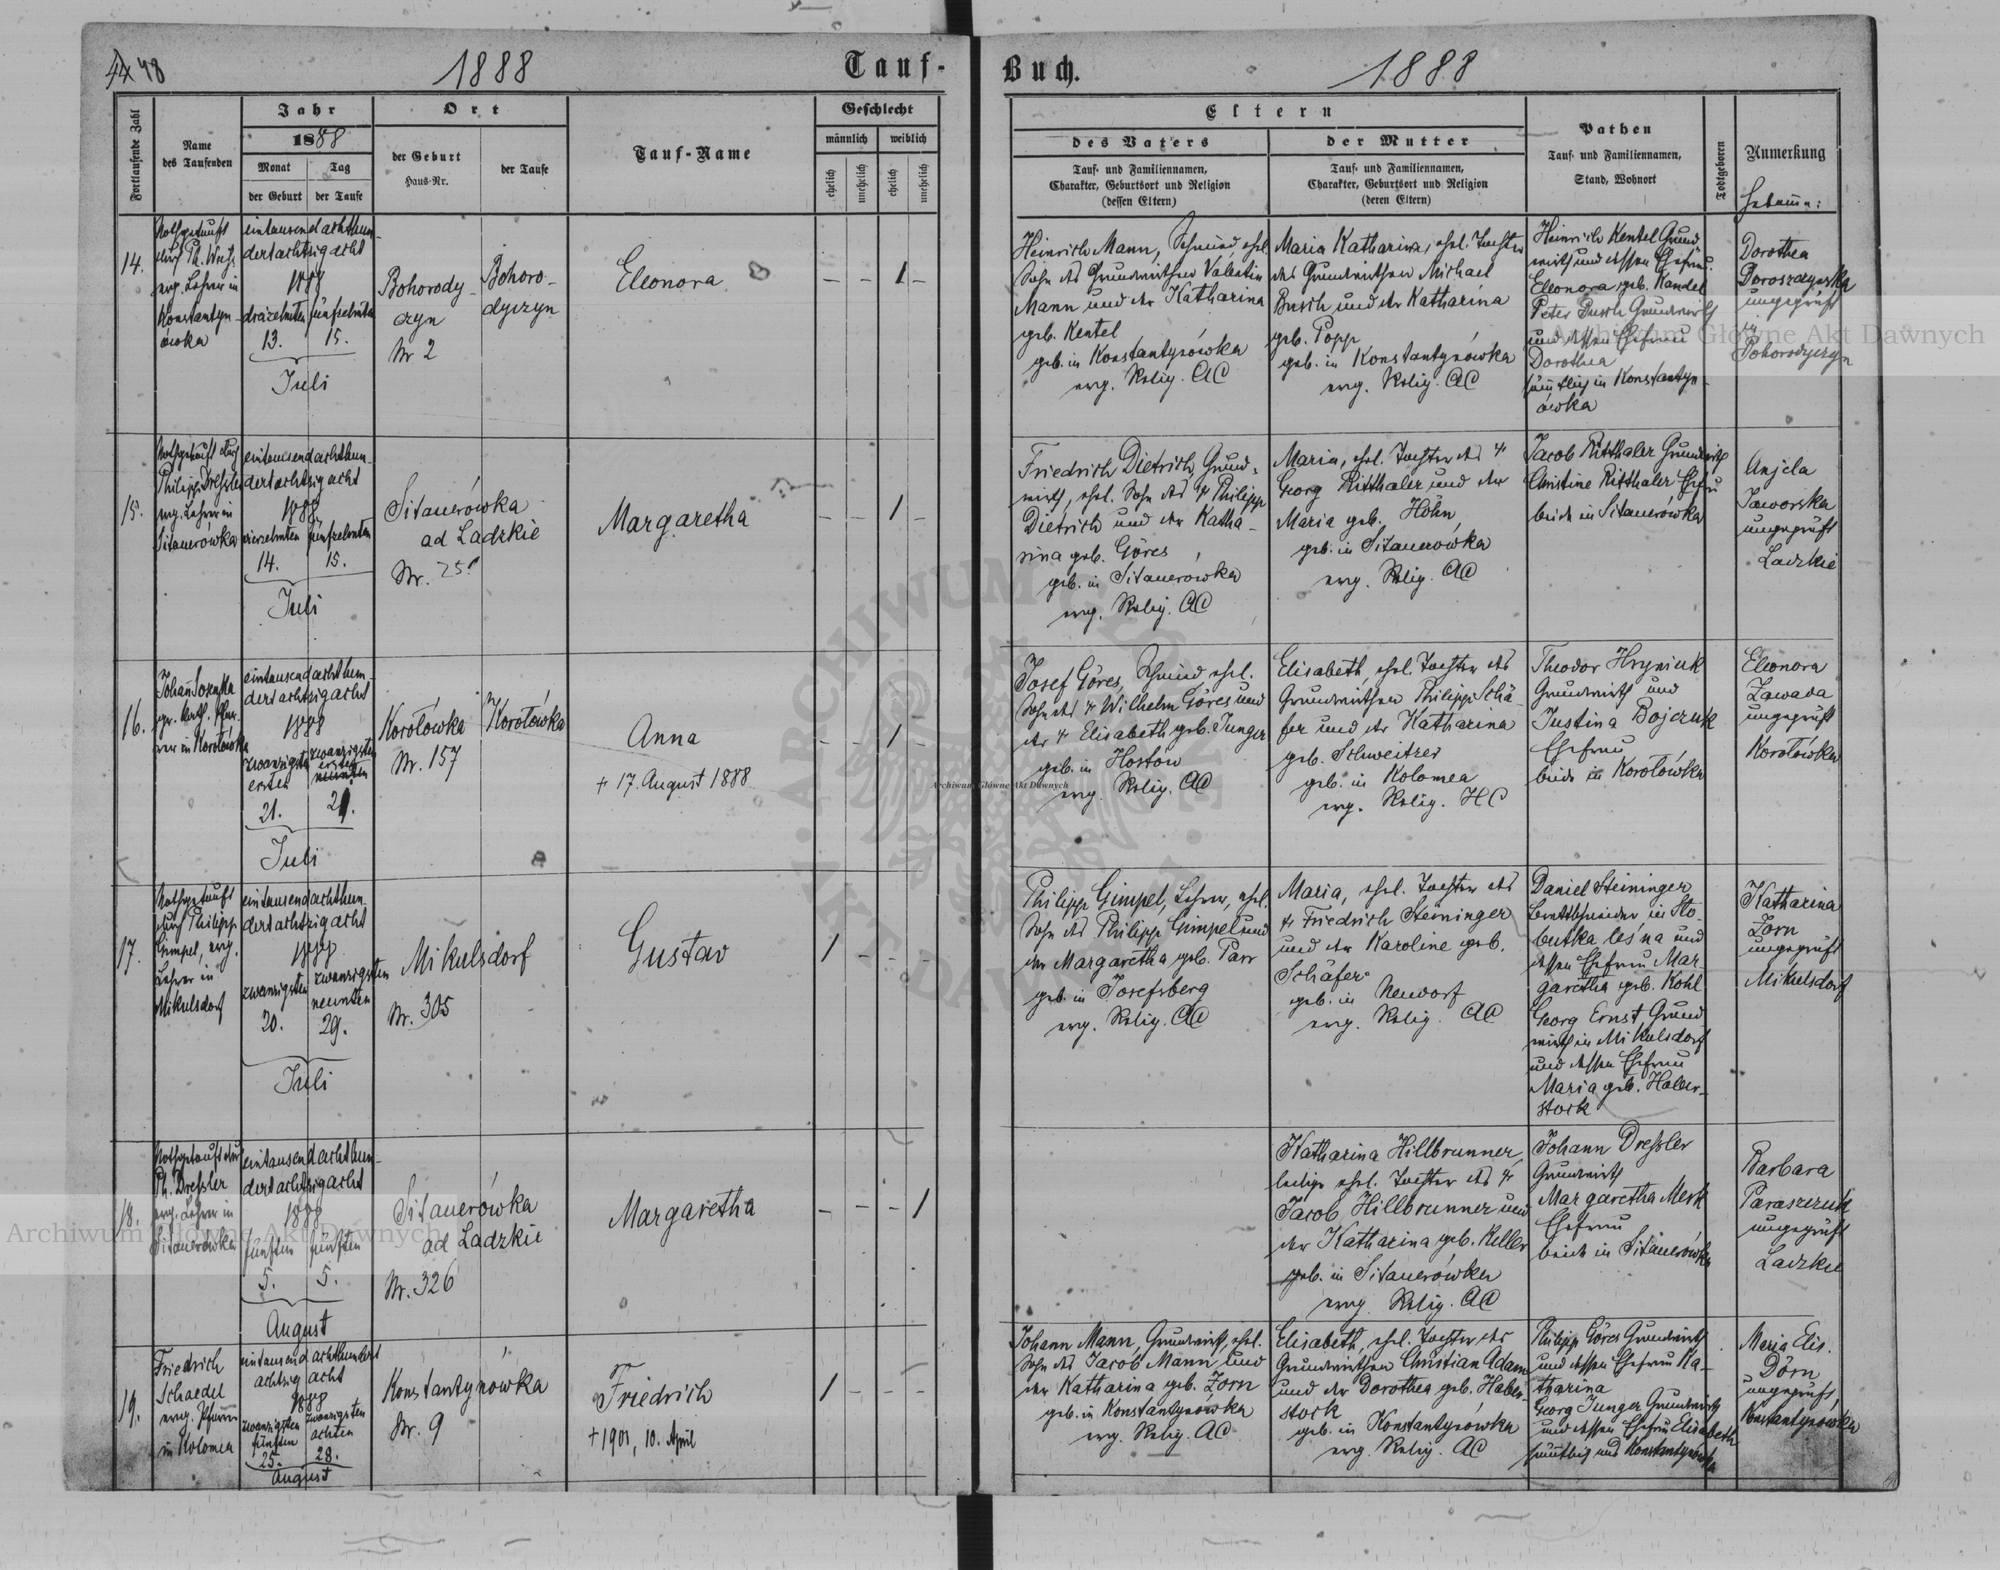 48
1888
Tauf-
Buch.
1888
Fortlaufende Zahl
Name
des Taufenden
Jahr
1888
Monat
Tag
der Geburt
der Taufe
Ort
der Geburt
Haus-Nr.
der Taufe
Tauf-Name
Geschlecht
männlich
weiblich
ehelich
unehelich
ehelich
unehelich
Eltern
des Vaters
Tauf- und Familiennamen,
Charakter, Geburtsort und Religion
(dessen Eltern)
der Mutter
Tauf- und Familiennamen,
Charakter, Geburtsort und Religion
(deren Eltern)
Pathen
Tauf- und Familiennamen,
Stand, Wohnort
Todtgeboren
Anmerkung
Hebamme:
14.
Nothgetauft
durch Ph.
evg. Lehrer in
Konstantyn-
ówka
eintausendachthun-
dertachtzigacht
1888
dreizehnten fünfzehnten
13. 15.
Juli
Bohorody-
czyn
Nr 2
Bohoro-
dyczyn
Eleonora
Heinrich Mann, Schmied, ehel.
Sohn des Grundwirthen Valentin
Mann und der Katharina
geb. Kentel
geb. in Konstantynówka
evg. Relig. AC
Maria Katharina, ehel. Tochter
des Grundwirthen Michael
Busch und der Katharina
geb. Popp
geb. in Konstantynówka
evg. Relig. AC
Heinrich Kentel Grund-
wirth und dessen Ehefrau
Eleonora geb. Kandel
Peter Busch Grundwirth
und dessen Ehefrau
Dorothea
sämtlich in Konstantyn-
ówka
Dorothea
ungeprüft
in
Bohorodyczyn
15.
Nothgetauft durch
Philipp Dressler
evg. Lehrer in
Sitauerówka
eintausendachthun-
dertachtzigacht
1888
vierzehnten fünfzehnten
14. 15.
Juli
Sitauerówka
ad Ladzkie
Nr. 251
Margaretha
Friedrich Dietrich Grund-
wirth, ehel. Sohn des † Philipp
Dietrich und der Katha-
rina geb. Göres
geb. in Sitauerówka
evg. Relig. AC
Maria, ehel. Tochter des †
Georg Ritthaler und der
Maria geb. Höhn
geb. in Sitauerówka
evg. Relig. AC
Jacob Ritthaler Grundwirth
Christine Ritthaler Ehefrau
beide in Sitauerówka
Anjela
Jaworska
ungeprüft
Ladzkie
16.
gr. kath. Pfar-
rer in Korołówka
eintausendachthun-
dertachtzigacht
1888
zwanzigsten zwanzigsten
ersten ersten
21. 21.
Juli
Korołówka
Nr. 157
Korołówka
Anna
+ 17. August 1888
Josef Göres, Schmied, ehel.
Sohn des † Wilhelm Göres und
der † Elisabeth geb. Junger
geb. in Hostów
evg. Relig. AC
Elisabeth, ehel. Tochter des
Grundwirthen Philipp Schä-
fer und der Katharina
geb. Schweitzer
geb. in Kolomea
evg. Relig. HC
Theodor Hryniuk
Grundwirth und
Justina Bojczuk
Ehefrau
beide in Korołówka
Eleonora
Zawada
ungeprüft
Korołówka
17.
Nothgetauft
durch Philipp
Gimpel, evg.
Lehrer in
Mikulsdorf
eintausendachthun-
dertachtzigacht
1888
zwanzigsten zwanzigsten
neunten
20. 29.
Juli
Mikulsdorf
Nr. 305
Gustav
Philipp Gimpel, Lehrer, ehel.
Sohn des Philipp Gimpel und
der Margaretha geb. Parr
geb. in Josefsberg
evg. Relig. AC
Maria, ehel. Tochter des
† Friedrich Steininger
und der Karoline geb.
Schäfer
geb. in Neudorf
evg. Relig. AC
Daniel Steininger
Brettschneider in Sło-
budka leśna und
dessen Ehefrau Mar
garetha geb. Kohl
Georg Ernst Grund-
wirth in Mikulsdorf
und dessen Ehefrau
Maria geb. Haber-
stock
Katharina
Zorn
ungeprüft
Mikulsdorf
18.
Nothgetauft durch
Ph. Dressler
evg. Lehrer in
Sitauerówka
eintausendachthun-
dertachtzigacht
1888
fünften fünften
5. 5.
August
Sitauerówka
ad Ladzkie
Nr. 326
Margaretha
Katharina Hillbrunner,
ledige ehel. Tochter des †
Jacob Hillbrunner und
der Katharina geb. Keller
geb. in Sitauerówka
evg. Relig. AC
Johann Dressler
Grundwirth
Margaretha Merk
Ehefrau
beide in Sitauerówka
Barbara
Paraszczuk
ungeprüft
Ladzkie
19.
Friedrich
Schaedel
evg. Pfarrer
in Kolomea
eintausend achthundert
achtzig acht
1888
zwanzigsten zwanzigsten
fünften achten
25. 28.
August
Konstantynówka
Nr. 9
Friedrich
+ 1901, 10. April
Johann Mann, Grundwirth, ehel.
Sohn des Jacob Mann und
der Katharina geb. Zorn
geb. in Konstantynówka
evg. Relig. AC
Elisabeth, ehel. Tochter des
Grundwirthen Christian Adam
und der Dorothea geb. Haber-
stock
geb. in Konstantynówka
evg. Relig. AC
Philipp Göres Grundwirth
und dessen Ehefrau Ka-
tharina
Georg Junger Grundwirth
und dessen Ehefrau Elisabeth
Maria Elis.
Dörn
ungeprüft
Konstantynówka
Archiwum Główne Akt Dawnych
Archiwum Główne Akt Dawnych
Archiwum Główne Akt Dawnych